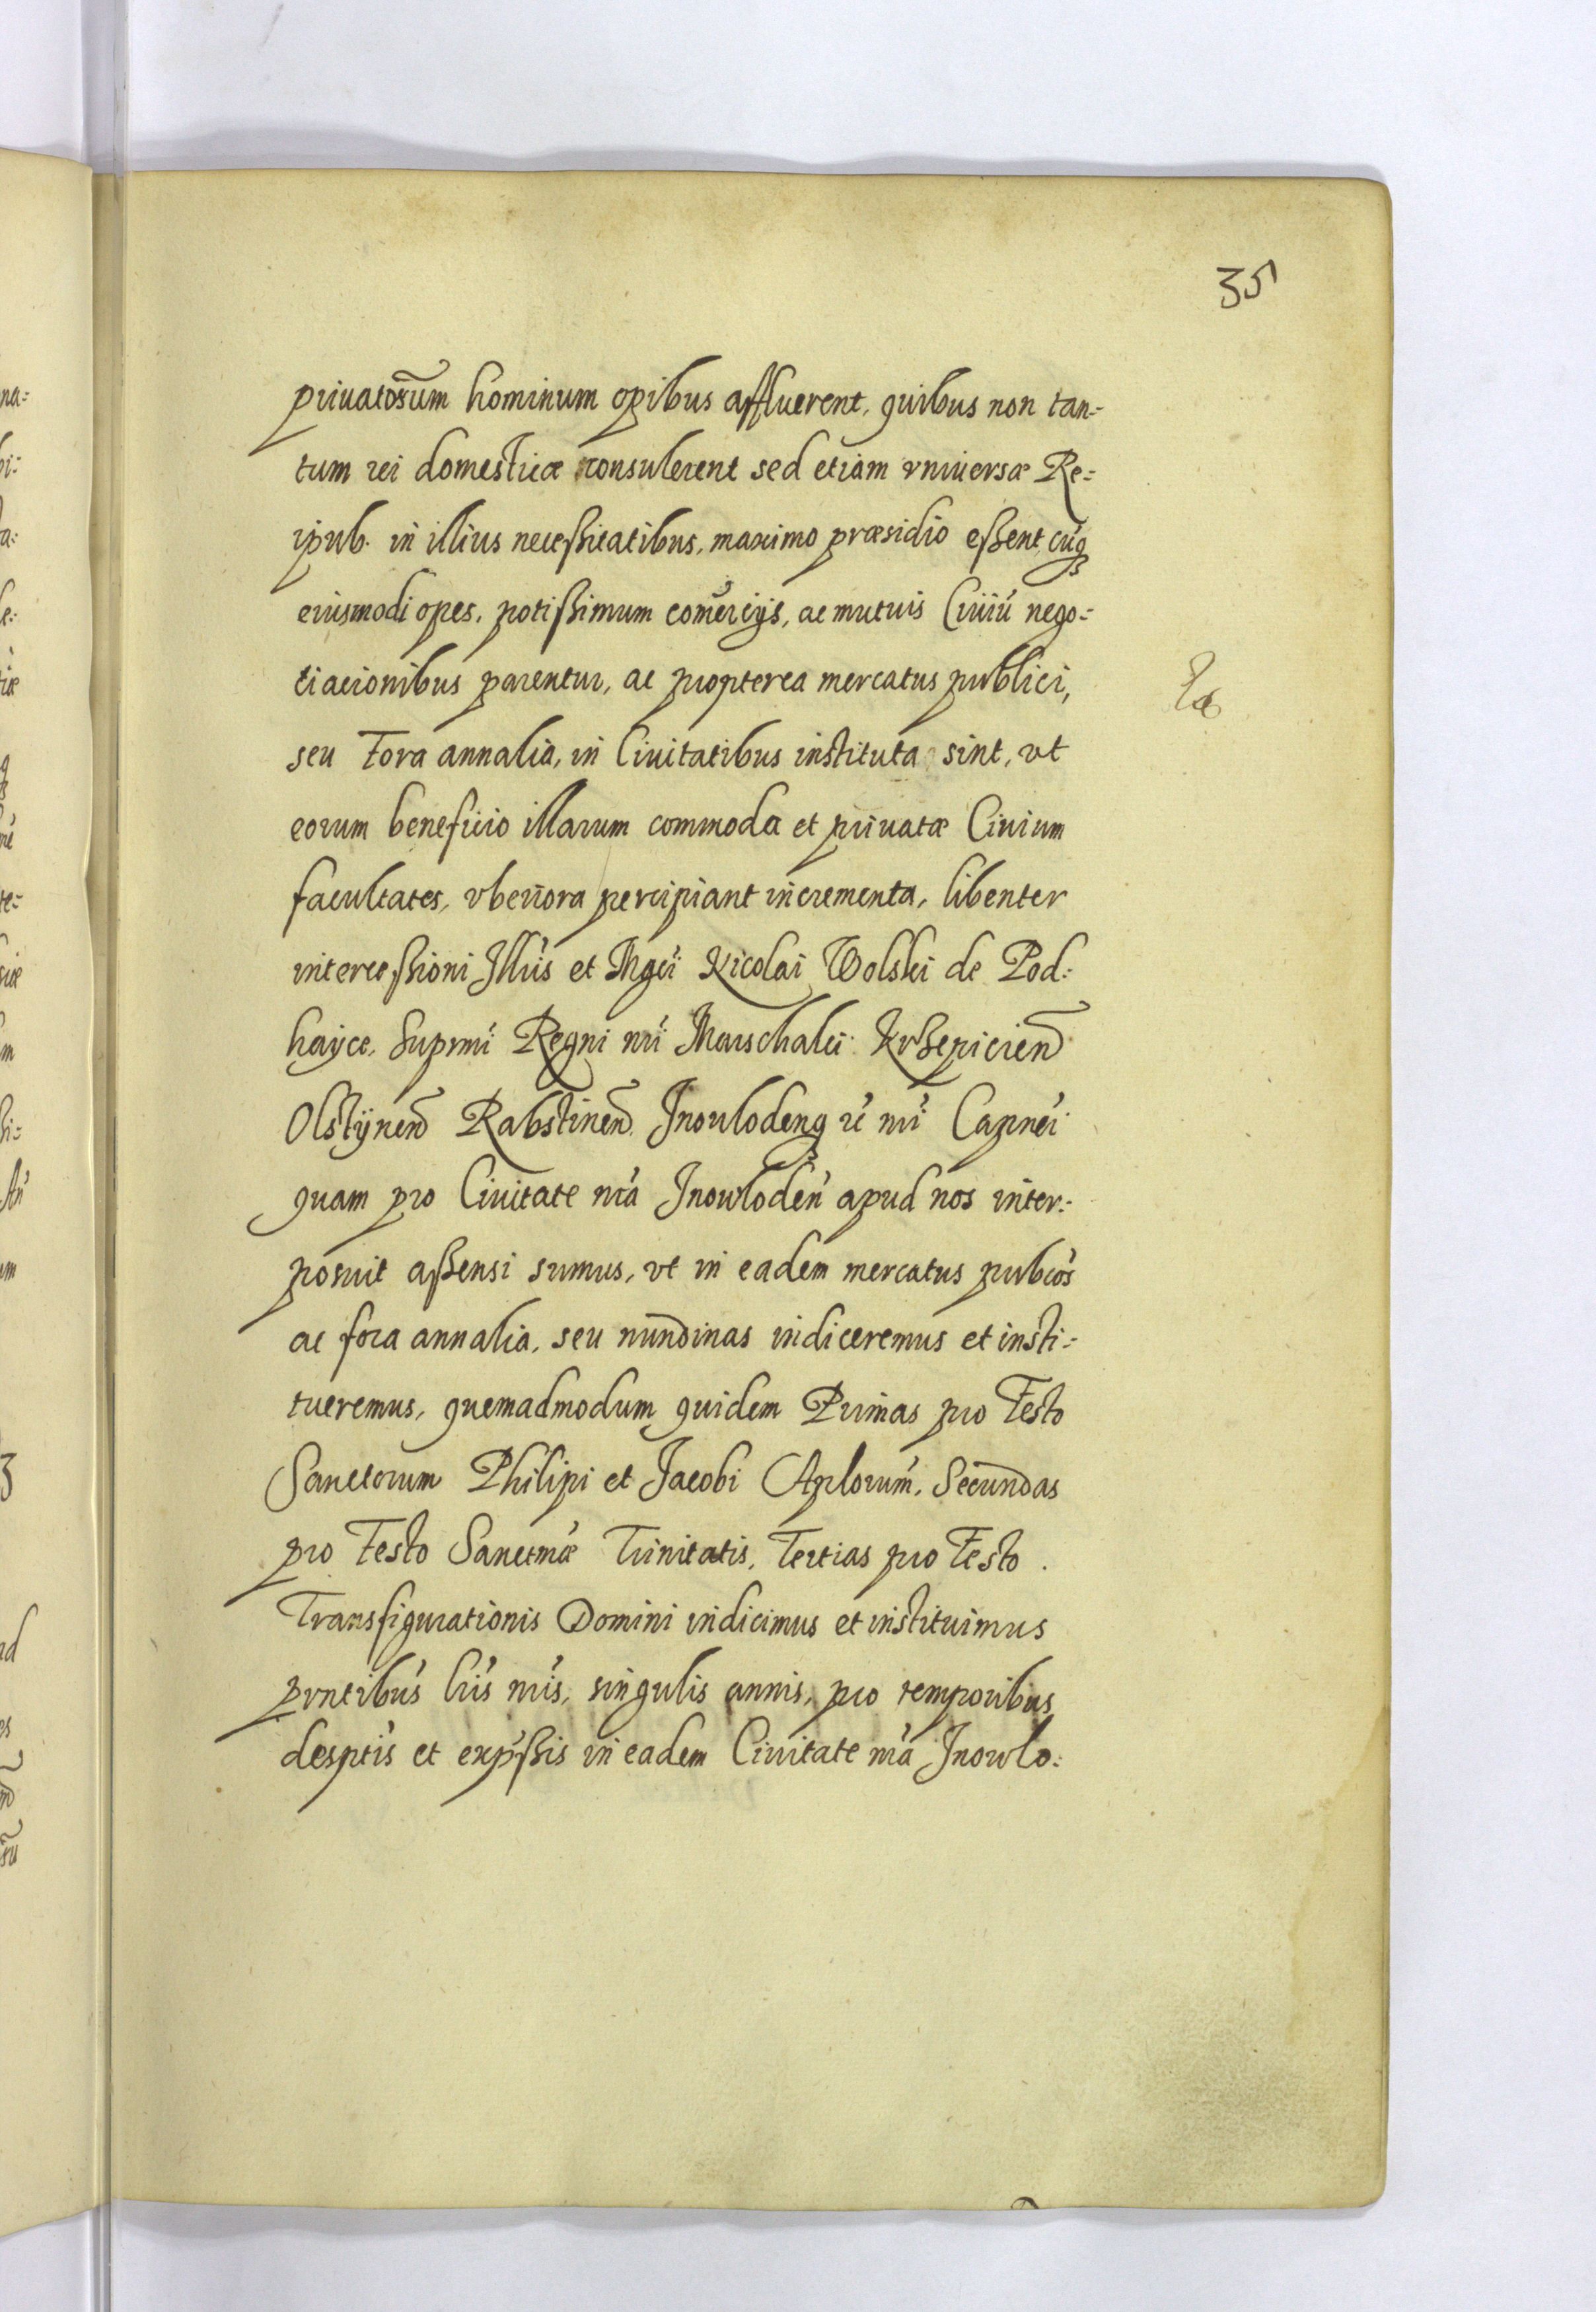 35
priuatorum hominum opibus affluerent, quibus non tan-
tum rei domesticæ consulerent sed etiam vniuersæ Re-
ipub. in illius necessitatibus, maximo præsidio essent, cuq3
eiusmodi opes, potissimum comercijs, ac mutuis Ciuiu nego-
tiacionibus parentur, ac propterea mercatus publici,
seu Fora annalia, in Ciuitatibus instituta sint, vt
eorum beneficio illarum commoda et priuatæ Ciuium
facultates, vberiora percipiant incrementa, libenter
intercessioni Illris et Mgci Nicolai Wolski de Pod-
hayce, Supmi Regni nri Marschalci Krzepicien
Olstÿnen Rabstinen Inowlodenq3 re nri Capnei
quam pro Ciuitate nra Inowloden apud nos inter-
posuit assensi sumus, vt in eadem mercatus pubcos
ac fora annalia, seu nundinas indiceremus et insti-
tueremus, quemadmodum quidem Primas pro Festo
Sanctorum Philipi et Jacobi Aplorum, Secundas
pro Festo Sanctmæ Trinitatis, Tertias pro Festo
Transfigurationis Domini indicimus et instituimus
pntibus lris nris, singulis annis, pro temporibus
desptis et expssis in eadem Ciuitate nra Inowlo-